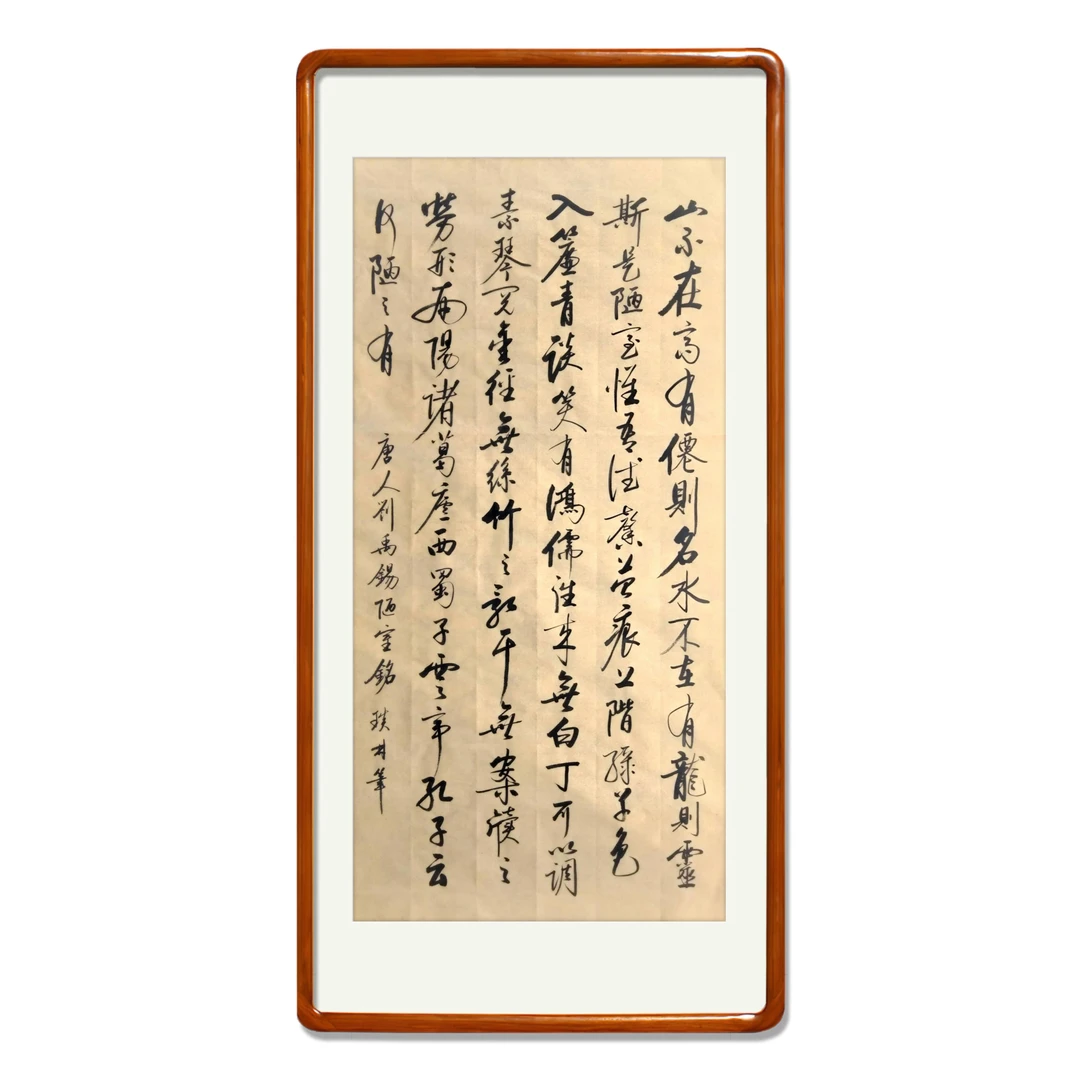 山不在高有僊則名水不在有龍則靈
斯是陋室惟吾德馨苔痕上階緑草色
入簾青談笑有鴻儒往来無白丁可以調
素琴閲金徑無絲竹之亂耳無案牘之
勞形南陽諸葛廬西蜀子雲亭孔子云
何陋之有 唐人劉禹錫陋室銘 筆